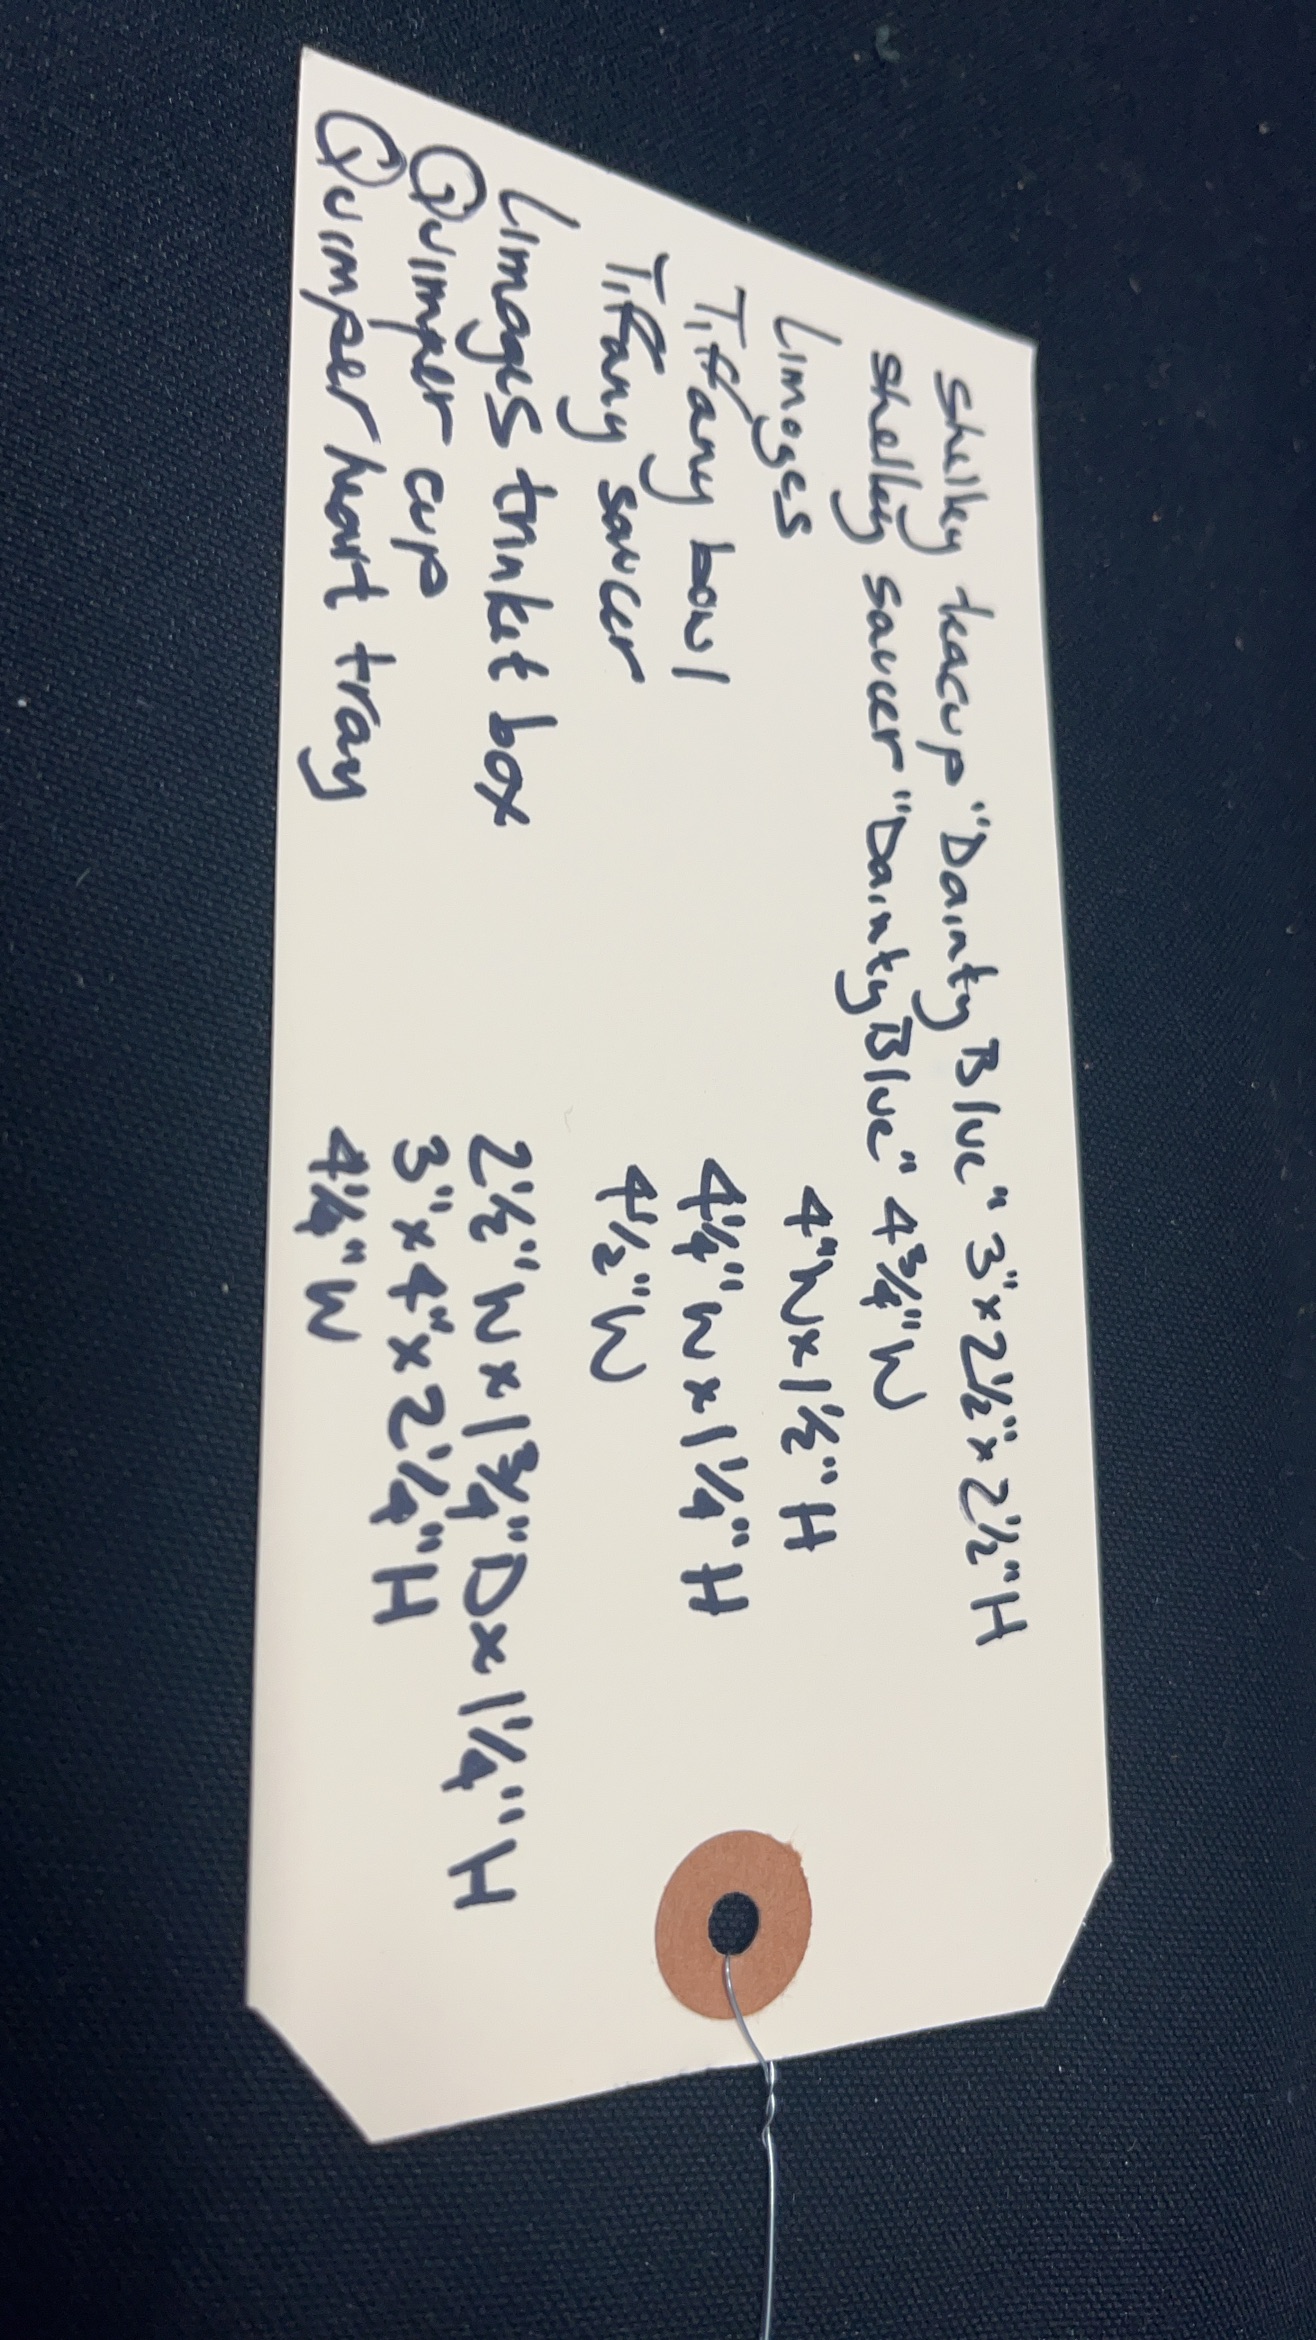 Shelley teacup "Dainty Blue" 3" x 2½" x 2½" H
Shelley saucer "Dainty Blue" 4¾" W
Limoges 4" W x 1½" H
Tiffany bowl 4¼" W x 1¼" H
Tiffany saucer 4½" W
Limoges trinket box 2½" W x 1¾" D x 1¼" H
Quimper cup 3" x 4" x 2¼" H
Quimper heart tray 4¼" W